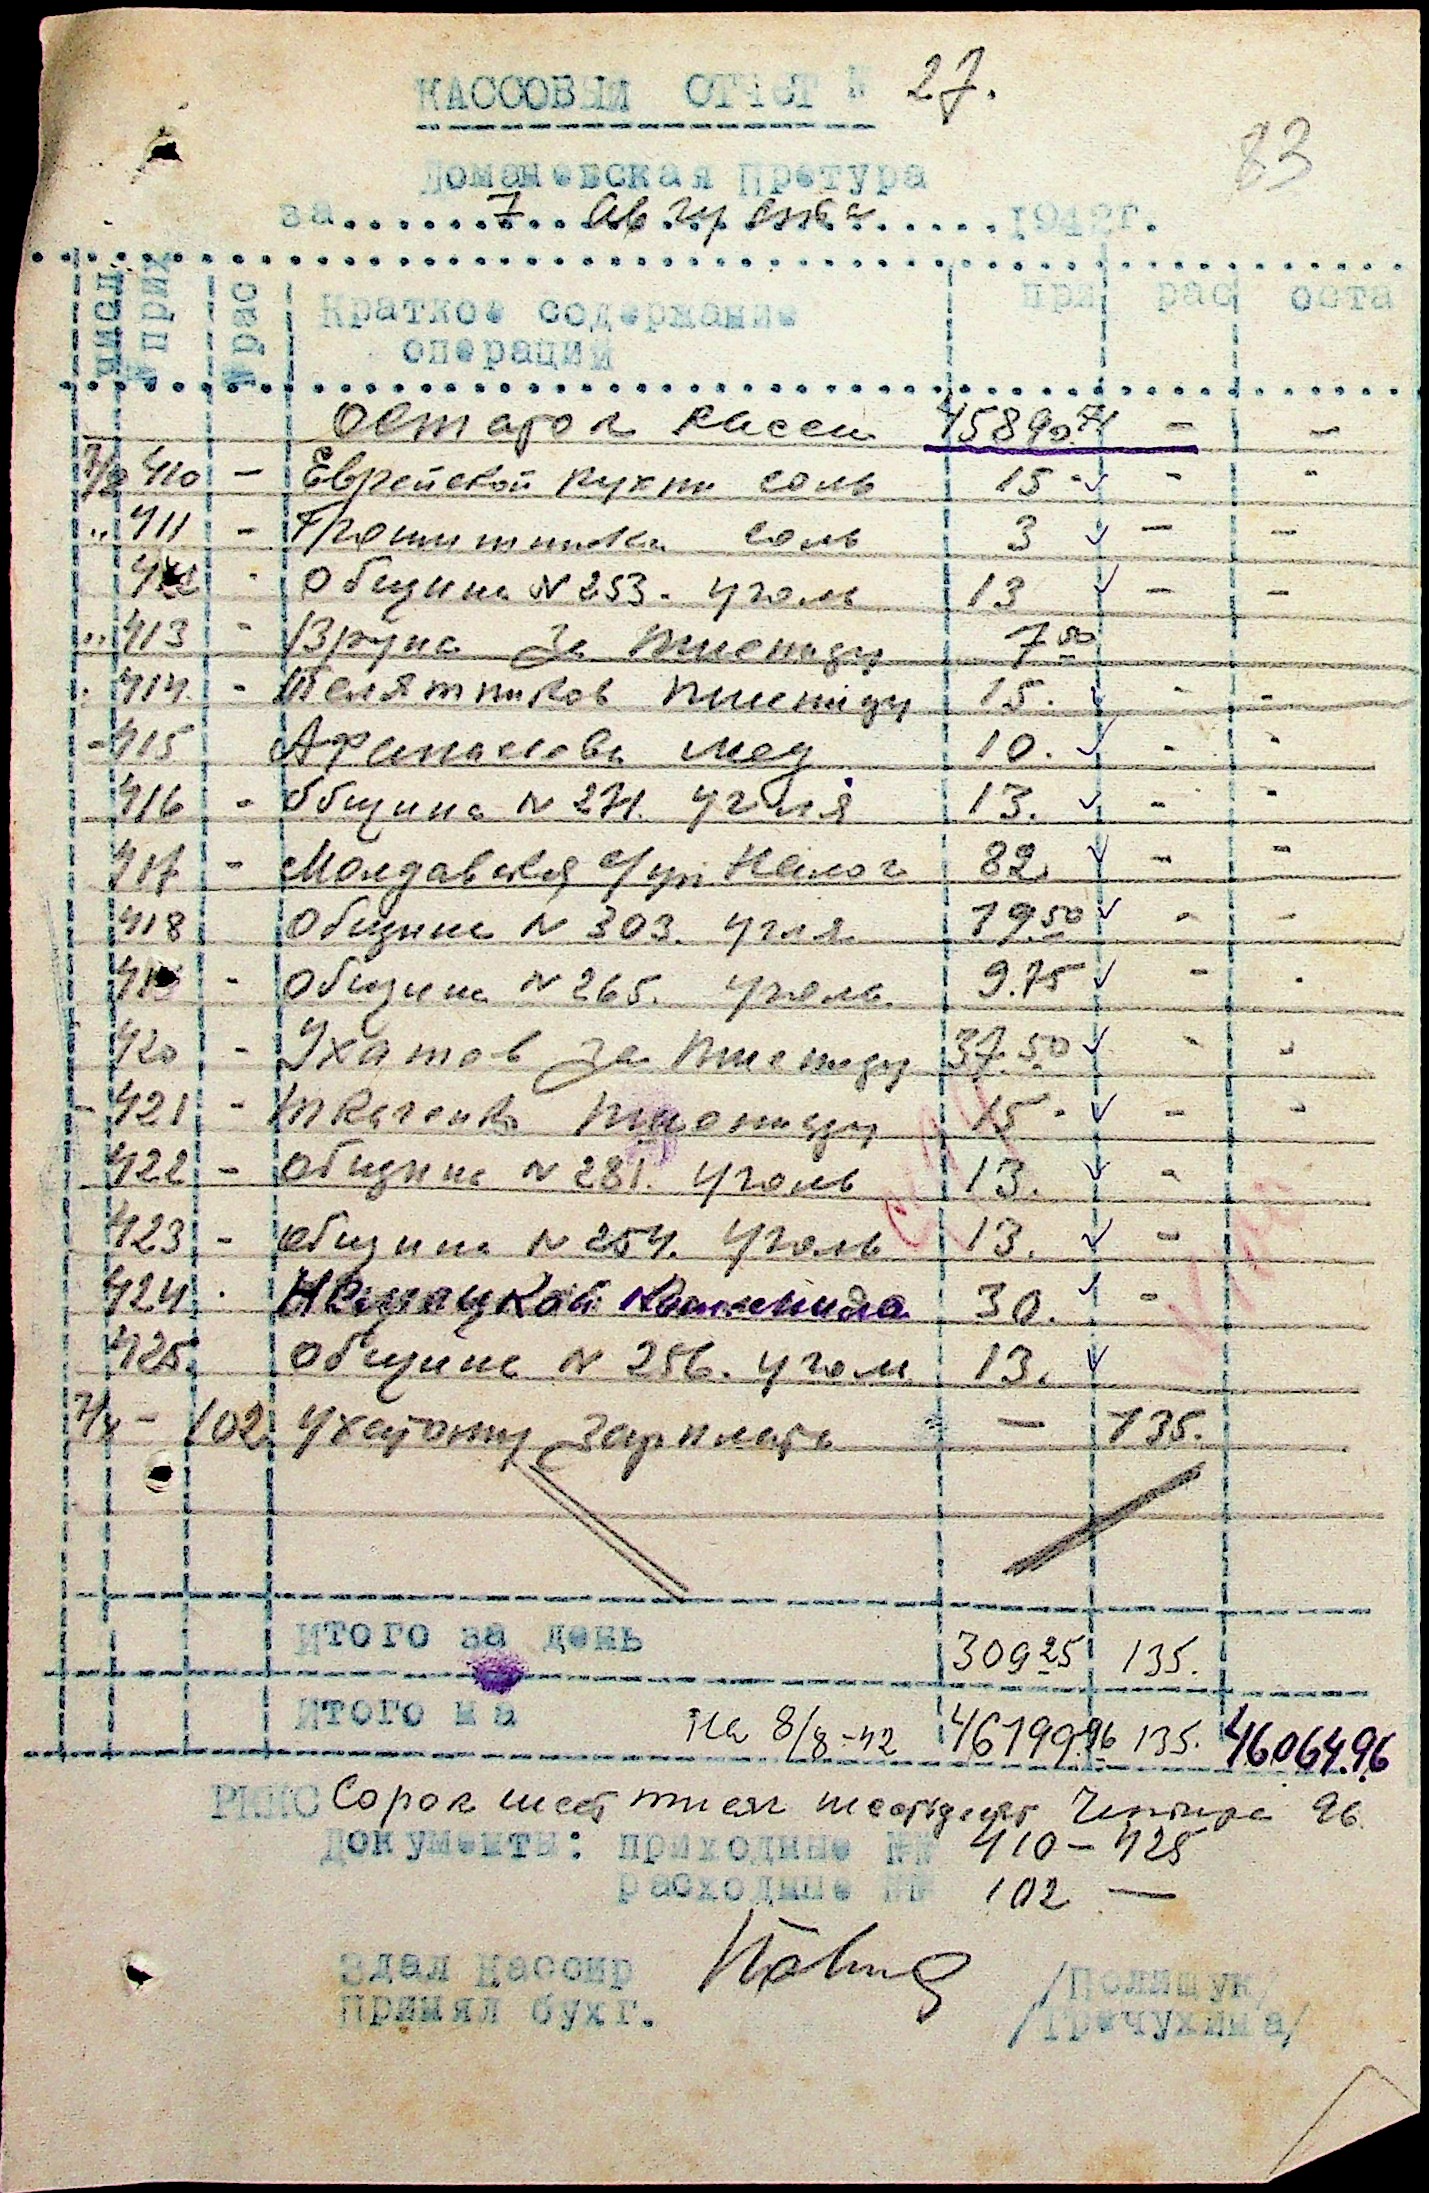 КАССОВЫЙ ОТЧЕТ № 27.
83
Доманевская Претура
за 7 Августа 1942г.
числ № прих № рас Краткое содержание операций при рас оста
Остаток кассы 45890.71 - -
7/8 410 - Еврейской кухни соль 15 - - -
" 411 - соль 3 - -
412 - Община № 253. уголь 13 - -
" 413 - за пшеницу 7 50
414. - Телятников пшеницу 15. - -
- 415 Афанасьева мед 10. - -
416 - Община № 271. угля 13. - -
417 - Молдавская с/уп. Налог 82. - -
418 Община № 303. угля 19.50 - -
419 - Община № 265. уголь 9.75 - -
420 - Ухатов за пшеницу 37.50 - -
- 421 - Ткаченко пшеницу 15 - - -
422 - Община № 281. уголь 13. -
423 - Община № 254. уголь 13. -
424 - Немецкой 30. -
425. Община № 256. уголь 13.
7/8 - 102 Ухатому зарплата - 135.
Итого за день 309 25 135.
Итого на на 8/8-42 46199.96 135. 46064.96
Сорок шест тисяч шестьдесят Четыре 96
Документы: приходные №№ 410 - 425
расходные №№ 102 —
Здал Кассир /Полищук/
Принял бухг. /Гречухина/